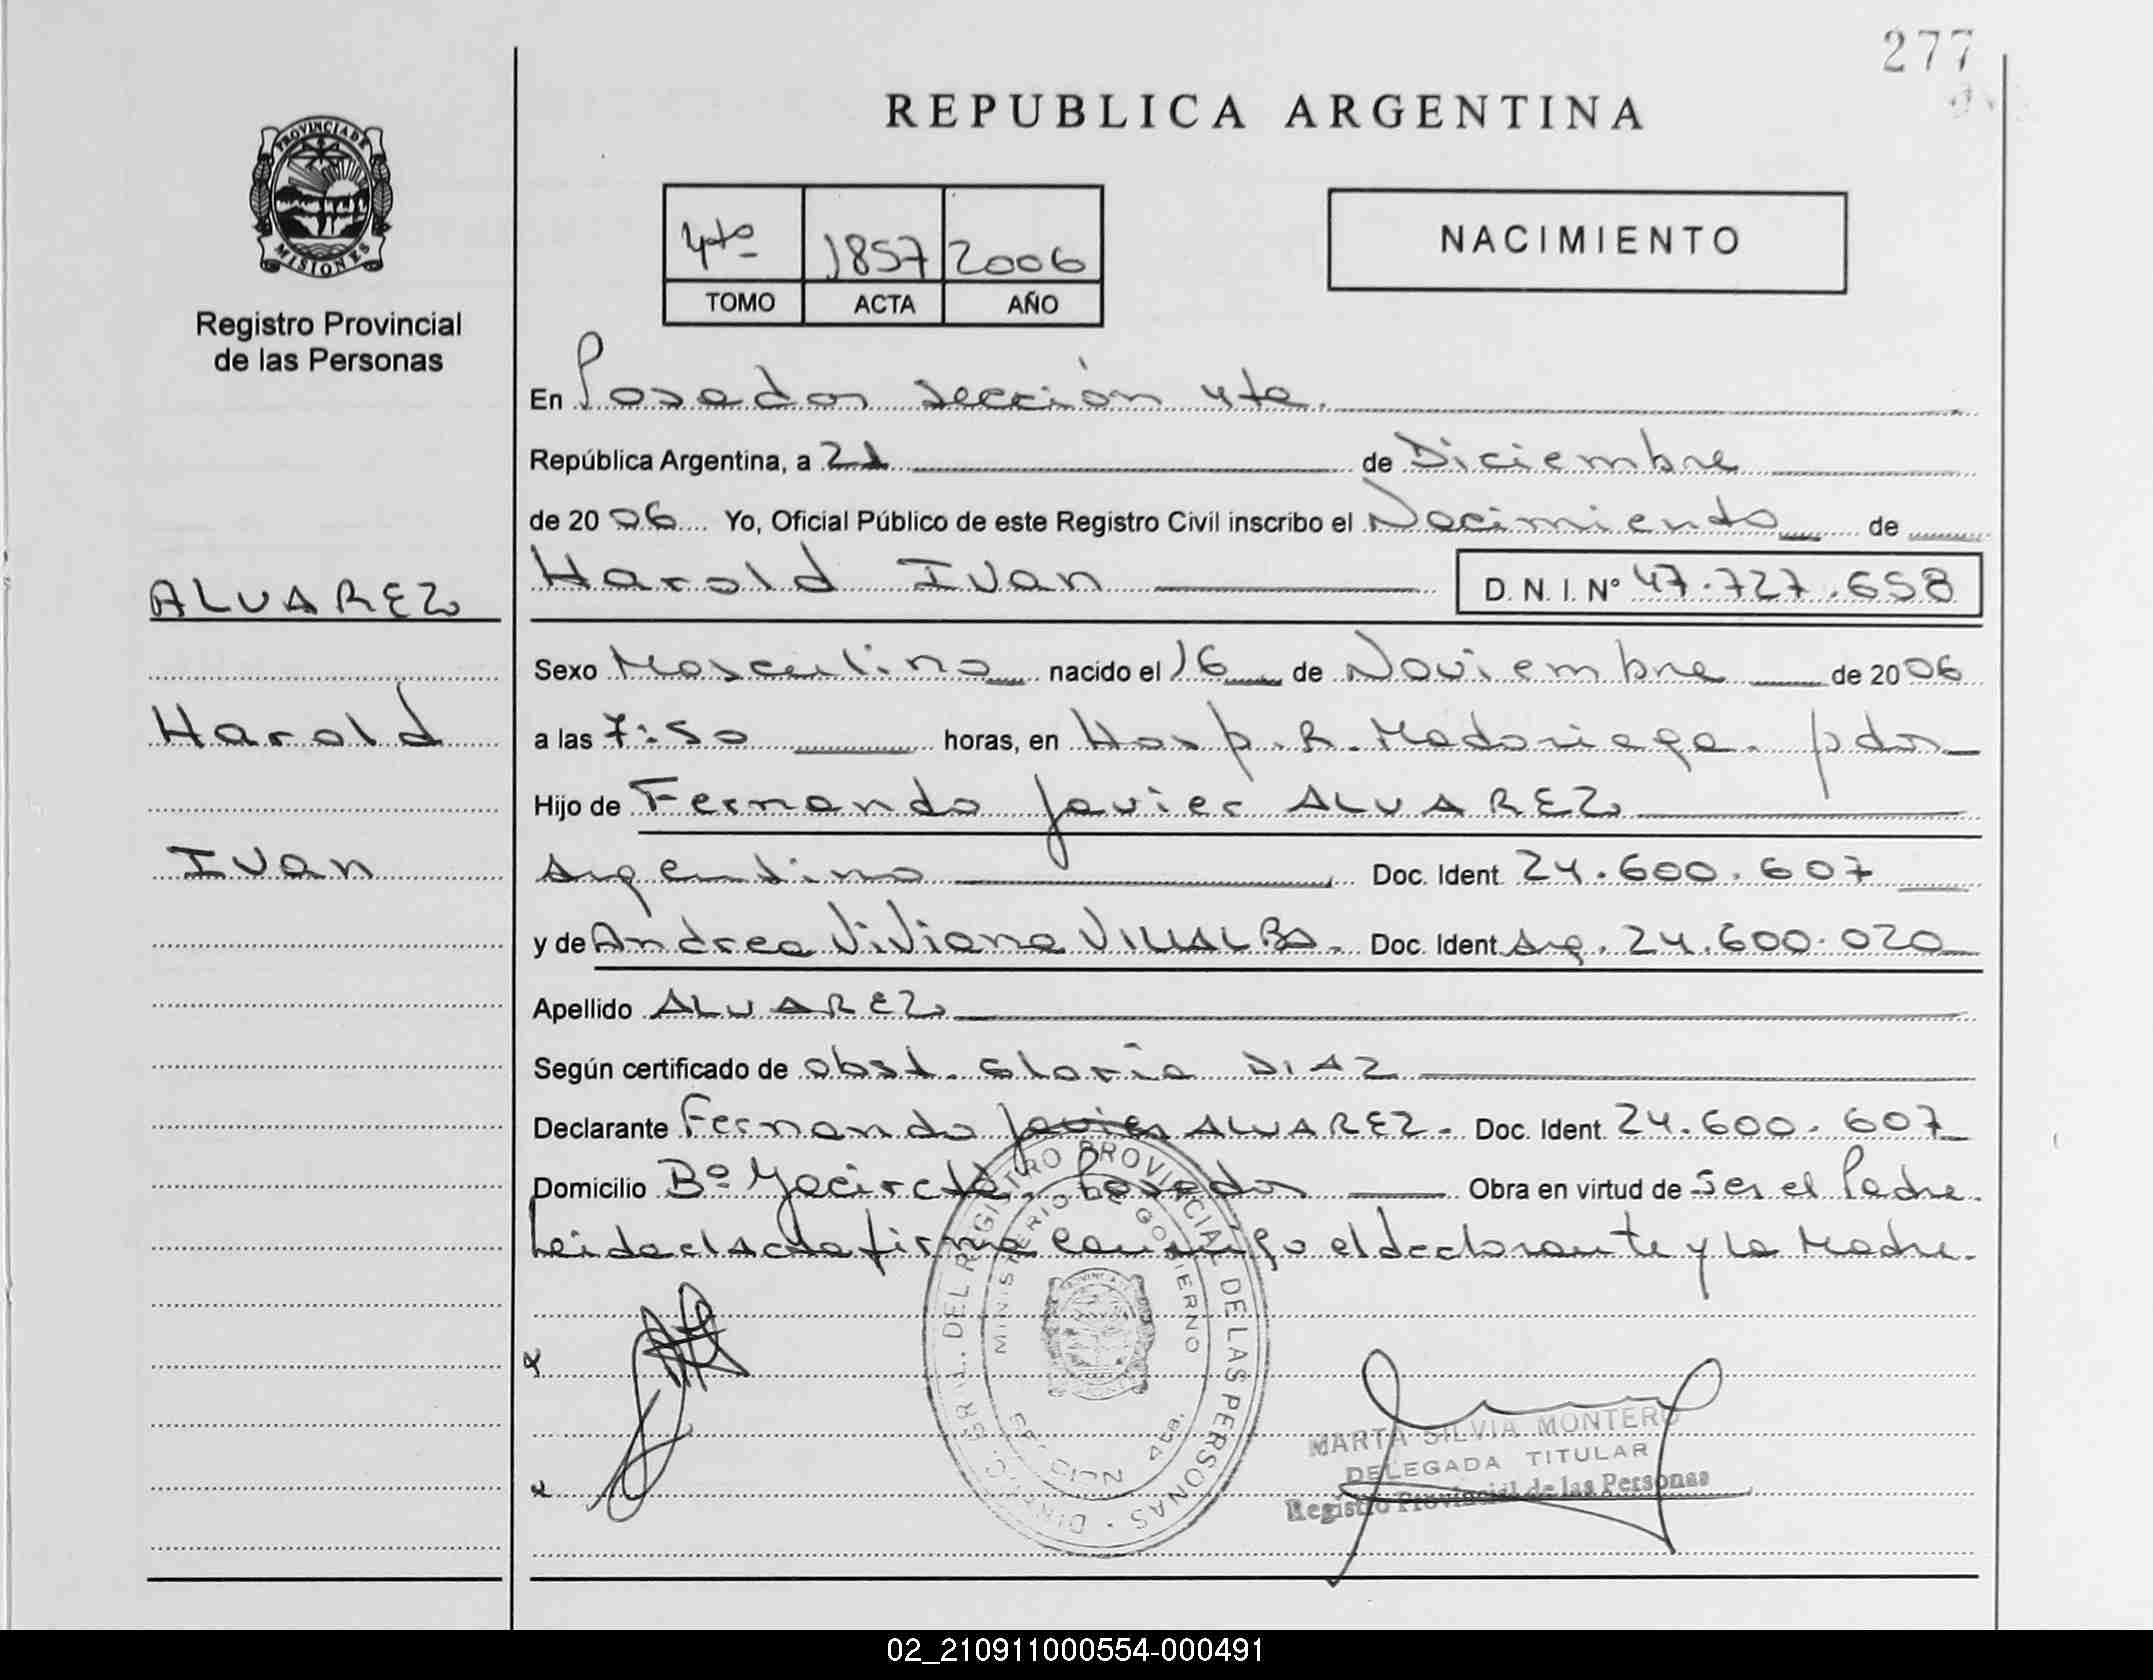 277
REPUBLICA ARGENTINA
PROVINCIA DE
MISIONES
Registro Provincial
de las Personas
4to 1857 2006
TOMO ACTA AÑO
NACIMIENTO
En Posadas sección 4ta.
República Argentina, a 21 de Diciembre
de 2006 Yo, Oficial Público de este Registro Civil inscribo el Nacimiento de
Harold Ivan D. N. I. Nº 47.727.658
ALVAREZ
Harold
Ivan
Sexo Masculino nacido el 16 de Noviembre de 2006
a las 7:50 horas, en Hosp. R. Madariaga. pdas
Hijo de Fernando Javier ALVAREZ
Argentino Doc. Ident. 24.600.607
y de Andrea Viviana VILLALBA. Doc. Ident Arg. 24.600.020
Apellido ALVAREZ
Según certificado de obst. Gloria DIAZ
Declarante Fernando Javier ALVAREZ. Doc. Ident. 24.600.607
Domicilio Bº Yacireta, Posadas Obra en virtud de Ser el Padre.
Leida el Acta firma conmigo el declarante y la Madre.
DEL REGISTRO PROVINCIAL DE LAS PERSONAS
MINISTERIO DE GOBIERNO
4ta.
MARTA SILVIA MONTERO
DELEGADA TITULAR
Registro Provincial de las Personas
02_210911000554-000491